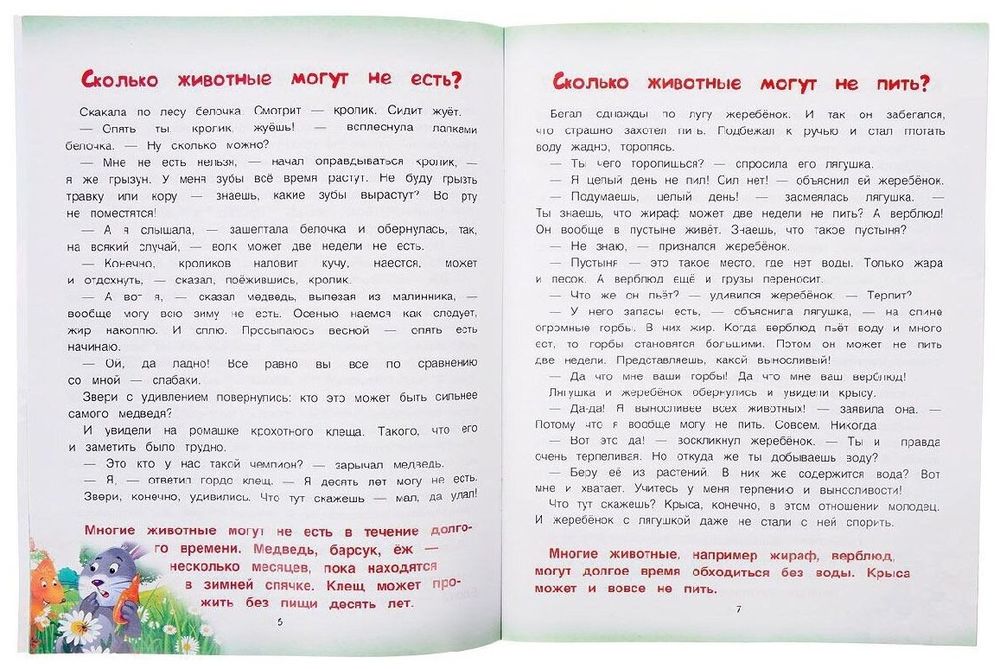 Сколько животные могут не есть?
Скакала по лесу белочка. Смотрит — кролик. Сидит жуёт.
— Опять ты, кролик, жуёшь! — всплеснула лапками
белочка. — Ну сколько можно?
— Мне не есть нельзя, — начал оправдываться кролик, —
я же грызун. У меня зубы всё время растут. Не буду грызть
травку или кору — знаешь, какие зубы вырастут? Во рту
не поместятся!
— А я слышала, — зашептала белочка и обернулась, так,
на всякий случай, — волк может две недели не есть.
— Конечно, кроликов наловит кучу, наестся, может
и отдохнуть, — сказал, поёжившись, кролик.
— А вот я, — сказал медведь, вылезая из малинника, —
вообще могу всю зиму не есть. Осенью наемся как следует,
жир накоплю. И сплю. Просыпаюсь весной — опять есть
начинаю.
— Ой, да ладно! Все равно вы все по сравнению
со мной — слабаки.
Звери с удивлением повернулись: кто это может быть сильнее
самого медведя?
И увидели на ромашке крохотного клеща. Такого, что его
и заметить было трудно.
— Это кто у нас такой чемпион? — зарычал медведь.
— Я, — ответил гордо клещ. — Я десять лет могу не есть.
Звери, конечно, удивились. Что тут скажешь — мал, да удал!
Многие животные могут не есть в течение долго-
го времени. Медведь, барсук, ёж —
несколько месяцев, пока находятся
в зимней спячке. Клещ может про-
жить без пищи десять лет.
6
Сколько животные могут не пить?
Бегал однажды по лугу жеребёнок. И так он забегался,
что страшно захотел пить. Подбежал к ручью и стал глотать
воду жадно, торопясь.
— Ты чего торопишься? — спросила его лягушка.
— Я целый день не пил! Сил нет! — объяснил ей жеребёнок.
— Подумаешь, целый день! — засмеялась лягушка. —
Ты знаешь, что жираф может две недели не пить? А верблюд!
Он вообще в пустыне живёт. Знаешь, что такое пустыня?
— Не знаю, — признался жеребёнок.
— Пустыня — это такое место, где нет воды. Только жара
и песок. А верблюд ещё и грузы переносит.
— Что же он пьёт? — удивился жеребёнок. — Терпит?
— У него запасы есть, — объяснила лягушка, — на спине
огромные горбы. В них жир. Когда верблюд пьёт воду и много
ест, то горбы становятся большими. Потом он может не пить
две недели. Представляешь, какой выносливый!
— Да что мне ваши горбы! Да что мне ваш верблюд!
Лягушка и жеребёнок обернулись и увидели крысу.
— Да-да! Я выносливее всех животных! — заявила она. —
Потому что я вообще могу не пить. Совсем. Никогда.
— Вот это да! — воскликнул жеребёнок. — Ты и правда
очень терпеливая. Но откуда же ты добываешь воду?
— Беру её из растений. В них же содержится вода? Вот
мне и хватает. Учитесь у меня терпению и выносливости!
Что тут скажешь? Крыса, конечно, в этом отношении молодец.
И жеребёнок с лягушкой даже не стали с ней спорить.
Многие животные, например жираф, верблюд,
могут долгое время обходиться без воды. Крыса
может и вовсе не пить.
7